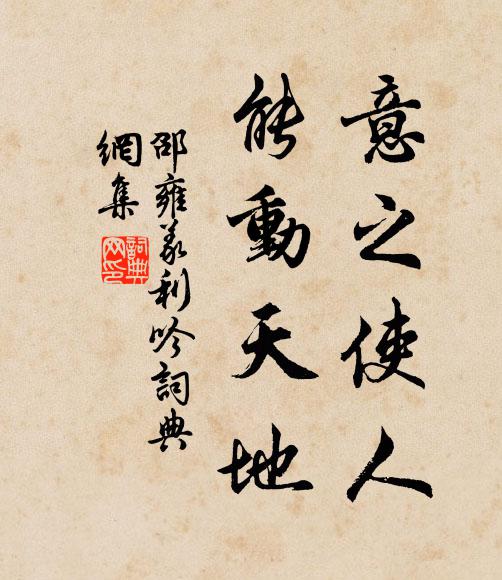 意之使人
能動天地
邵雍義利吟詞典
網集
詞典
网印